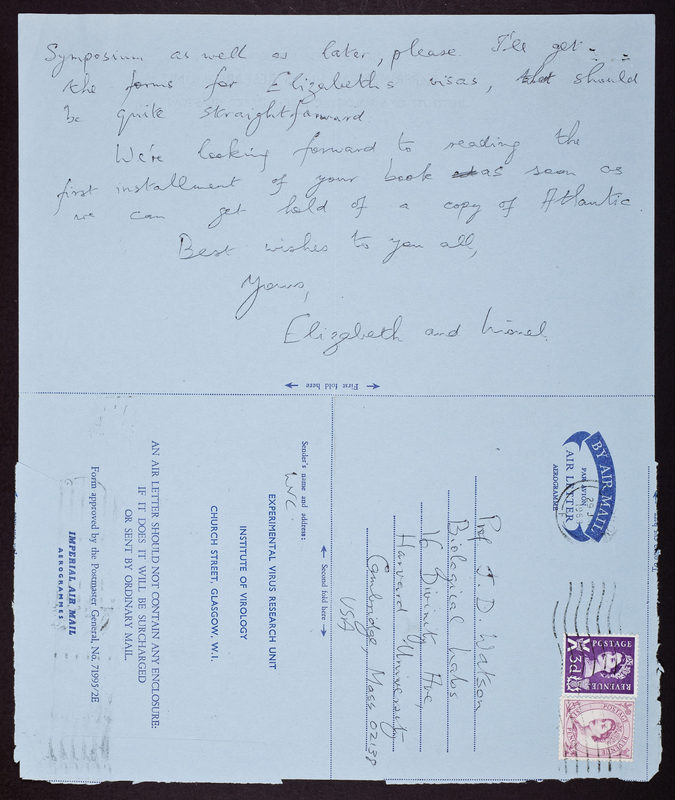 Symposium as well as later, please. I'll get
the forms for Elizabeth's visas, that should
be quite straightforward
We're looking forward to reading the
first installment of your book as soon as
we can get hold of a copy of Atlantic
Best wishes to you all,
Yours,
Elizabeth and Lionel.
First fold here
BY AIR MAIL
PAR AVION
AIR LETTER
AEROGRAMME
POSTAGE
3D
REVENUE
POSTAGE
REVENUE
Prof J. D. Watson
Biological Labs
16 Divinity Ave,
Harvard University
Cambridge, Mass 02138
USA
Second fold here
Sender's name and address:
LVC
EXPERIMENTAL VIRUS RESEARCH UNIT
INSTITUTE OF VIROLOGY
CHURCH STREET, GLASGOW, W.1.
AN AIR LETTER SHOULD NOT CONTAIN ANY ENCLOSURE;
IF IT DOES IT WILL BE SURCHARGED
OR SENT BY ORDINARY MAIL.
Form approved by the Postmaster General, No. 71995/2E
IMPERIAL AIR MAIL
AEROGRAMMES